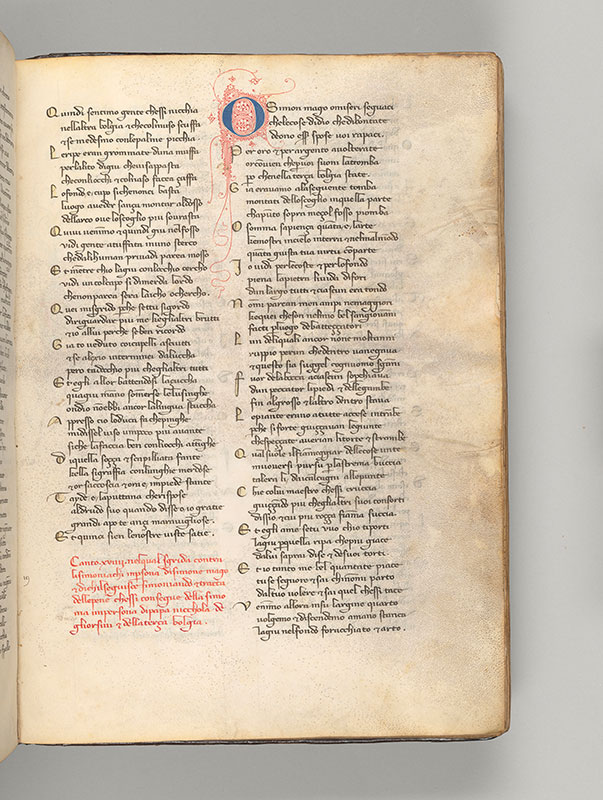 Quindi sentimo gente chessi nicchia
nellaltra bolgia et checolmuso scuffa
et se medesmo conlepalme picchia
Leripe eran grommate duna muffa
perlalito digiu cheuisappasta
checonliocchi et colnaso facea çuffa
Lofondo e cupo sichenonci basta
luogo aueder sança montar aldosso
dellarco oue loscoglio piu sourasta
Quiui uenimo et quindi giu nelfosso
vidi gente attuffata inuno sterco
chedalihuman priuadi parea mosso
Et mentre chio lagiu conlocchio cercho
vidi un colcapo si dimerda lordo
chenonparea sera laicho ochercho
Quei misgrido perche settu sigordo
diriguardar piu me keglialtri brutti
et io allui perche seben ricordo
Gia to veduto coicapelli asciutti
et se alexio interminei dalucha
pero tadocchio piu cheglialtri tutti
Et egli allor battendosi lacucca
quagiu mano somerse lelusinghe
ondio noebbi ancor lalingua stuccha
Appresso cio loduca fa chepinghe
midissel uiso umpoco piu auante
siche lafaccia ben conliocchi attinghe
Diquella soçça et scapilliata fante
kella sigraffia conlunghie merdose
et or saccoscia et ora e impiede stante
Tayde e laputtana cherispose
aldrudo suo quando disse o io gratie
grandi apo te ançi marauigliose
Et quinci sien lenostre uiste satie
Canto xviiij nelqual sgrida contra
lisimoniachi inpersona disimone mago
et dichilseguisce simoniando et tracta
dellepene chessi consegue della simo
nia impersona dipapa nicchola de
gliorsini et dellaterça bolgia
O Simon mago omiseri seguaci
chelecose didio chedibontate
deono esser spose uoi rapaci
Per oro et per argento auolterate
orconuien cheperuoi suoni latromba
pero chenella terça bolgia state
Gia erauamo alaseguente tomba
montati delloscoglio inquella parte
chapunto sopra meçol fosso piomba
O somma sapiença quanta e larte
kemostri incielo interra et nelmalmondo
et quanto giusta tua uirtu comparte
Io uidi perlecoste et perlofondo
piena lapietra liuida di fori
dun largo tutti et ciascun era tondo
Non mi parean men ampi nemaggiori
kequei cheson nelmio belsangiouanni
facti perluogo debatteççatori
Lun deliquali ancor none moltanni
ruppio perun chedentro uanegaua
et questo sia suggel cogniuomo sganni
Fuor delabocca aciascun soperchiaua
dun peccator lipiedi et dellegambe
fin algrosso et laltro dentro staua
Lepiante erano atutte accese intrambe
perche siforte guiççauan legiunte
chespeççate auerian ritorte et strambe
Qual suole ilfiameggiar dellecose unte
muouersi pursu perlastrema buccia
talera li dacalcagni allepunte
Chie colui maestro chessi cruccia
guiççando piu cheglialtri suoi consorti
dissio et cui piu roçça fiama succia
Et egli ame setu vuo chio tiporti
lagiu perquella ripa chepiu giace
dalui saprai dise et desuoi torti
Et io tanto me bel quantate piace
tu se segnore et sai chinomi parto
daltuo volere et sai quel chessi tace
Venimo allora insu largino quarto
volgemo et discendemo amano stanca
lagiu nelfondo foracchiato et arto